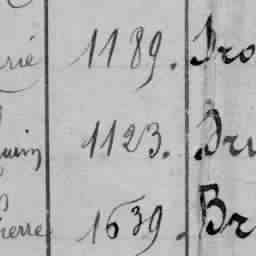 rié 1189. Tro
quin 1123. Dru
ierre 1639. Br